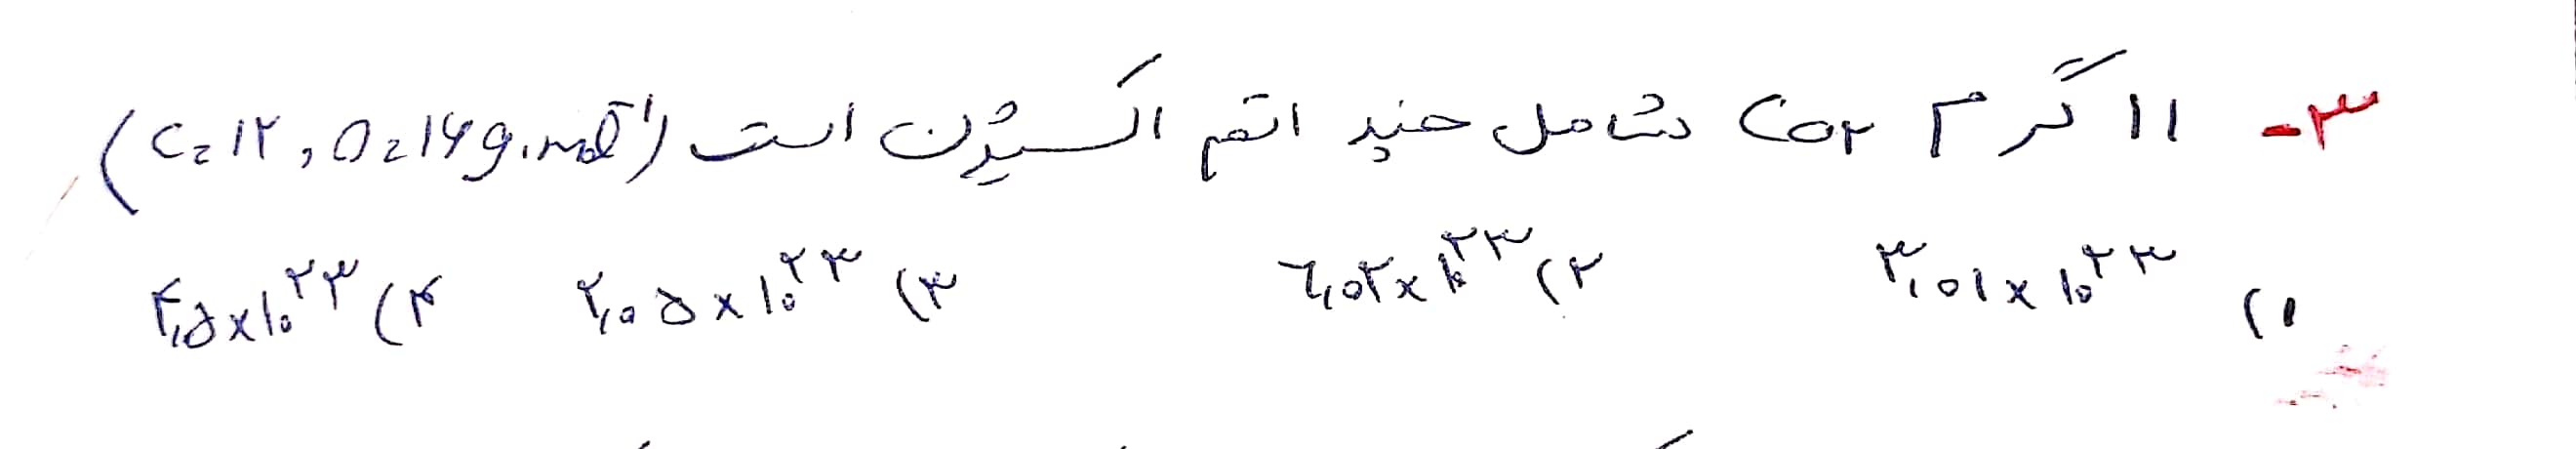 ۳- ۱۱ گرم CO۲ شامل چند اتم اکسیژن است (C=۱۲, O=۱۶ g.mol⁻¹)
۱) ۳,۰۱×۱۰^۲۳ ۲) ۶,۰۲×۱۰^۲۳ ۳) ۲,۰۵×۱۰^۲۳ ۴) ۴,۵×۱۰^۲۳